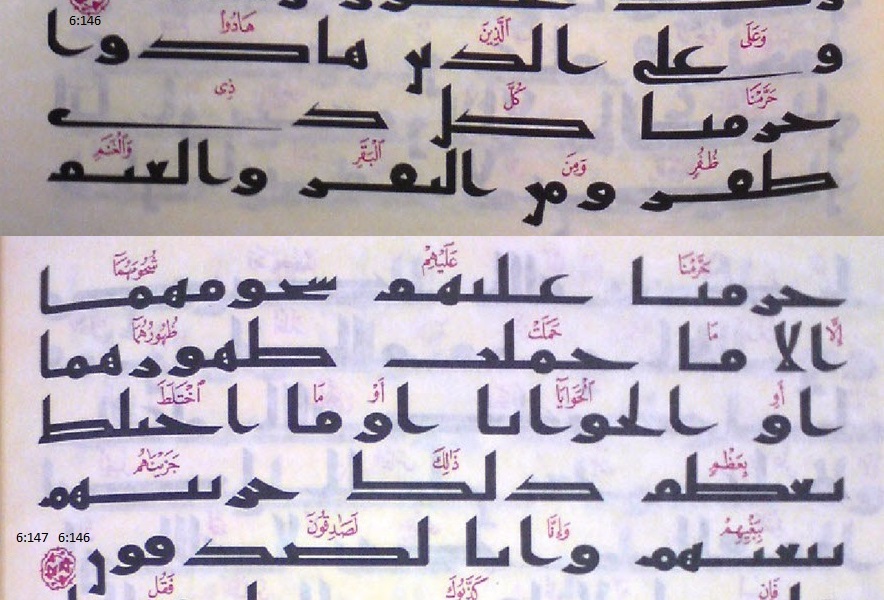 6:146
وَعَلَى ٱلَّذِينَ هَادُوا۟
و على الدين هادوا
حَرَّمْنَا كُلَّ ذِى
حرمنا كل دى
ظُفُرٍ وَمِنَ ٱلْبَقَرِ وَٱلْغَنَمِ
طفر ومن البقر والغنم
حَرَّمْنَا عَلَيْهِمْ شُحُومَهُمَآ
حرمنا عليهم شحومهما
إِلَّا مَا حَمَلَتْ ظُهُورُهُمَآ
الا ما حملت طهورهما
أَوِ ٱلْحَوَايَآ أَوْ مَا ٱخْتَلَطَ
او الحوايا او ما اختلط
بِعَظْمٍ ذَٰلِكَ جَزَيْنَٰهُم
بعطم دلك جزينهم
بِبَغْيِهِمْ وَإِنَّا لَصَٰدِقُونَ
ببغيهم وانا لصدقون
6:147 6:146
فَإِن كَذَّبُوكَ فَقُل